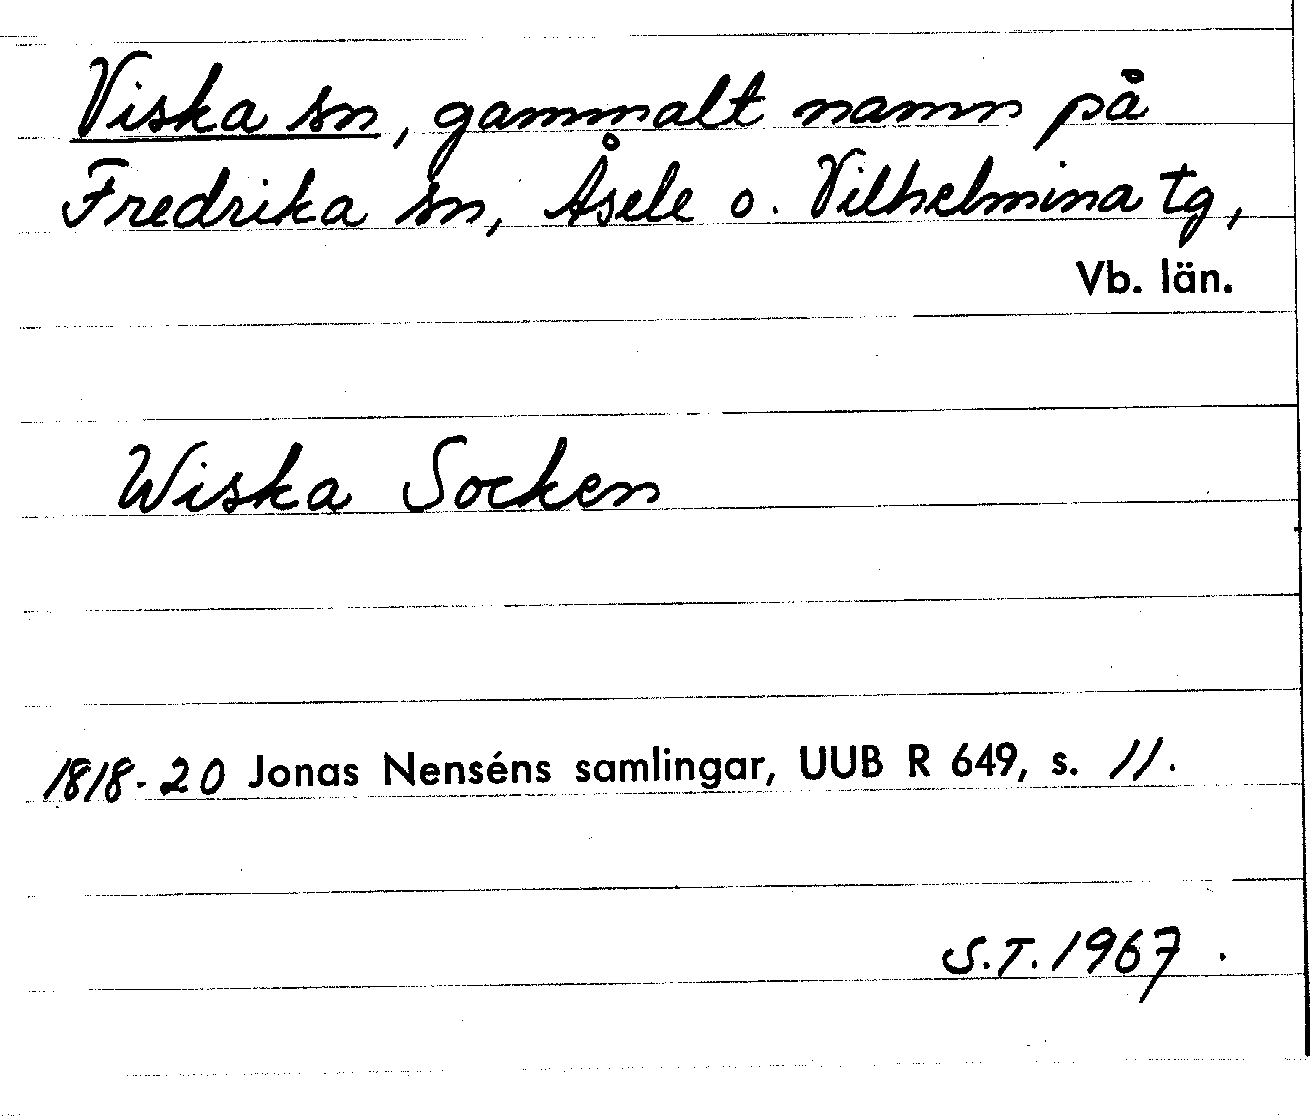 Viska sn, gammalt namn på
Fredrika sn, Åsele o. Vilhelmina tg,
Vb. län.
Wiska Socken
1818-20 Jonas Nenséns samlingar, UUB R 649, s. 11.
S.T. 1967.